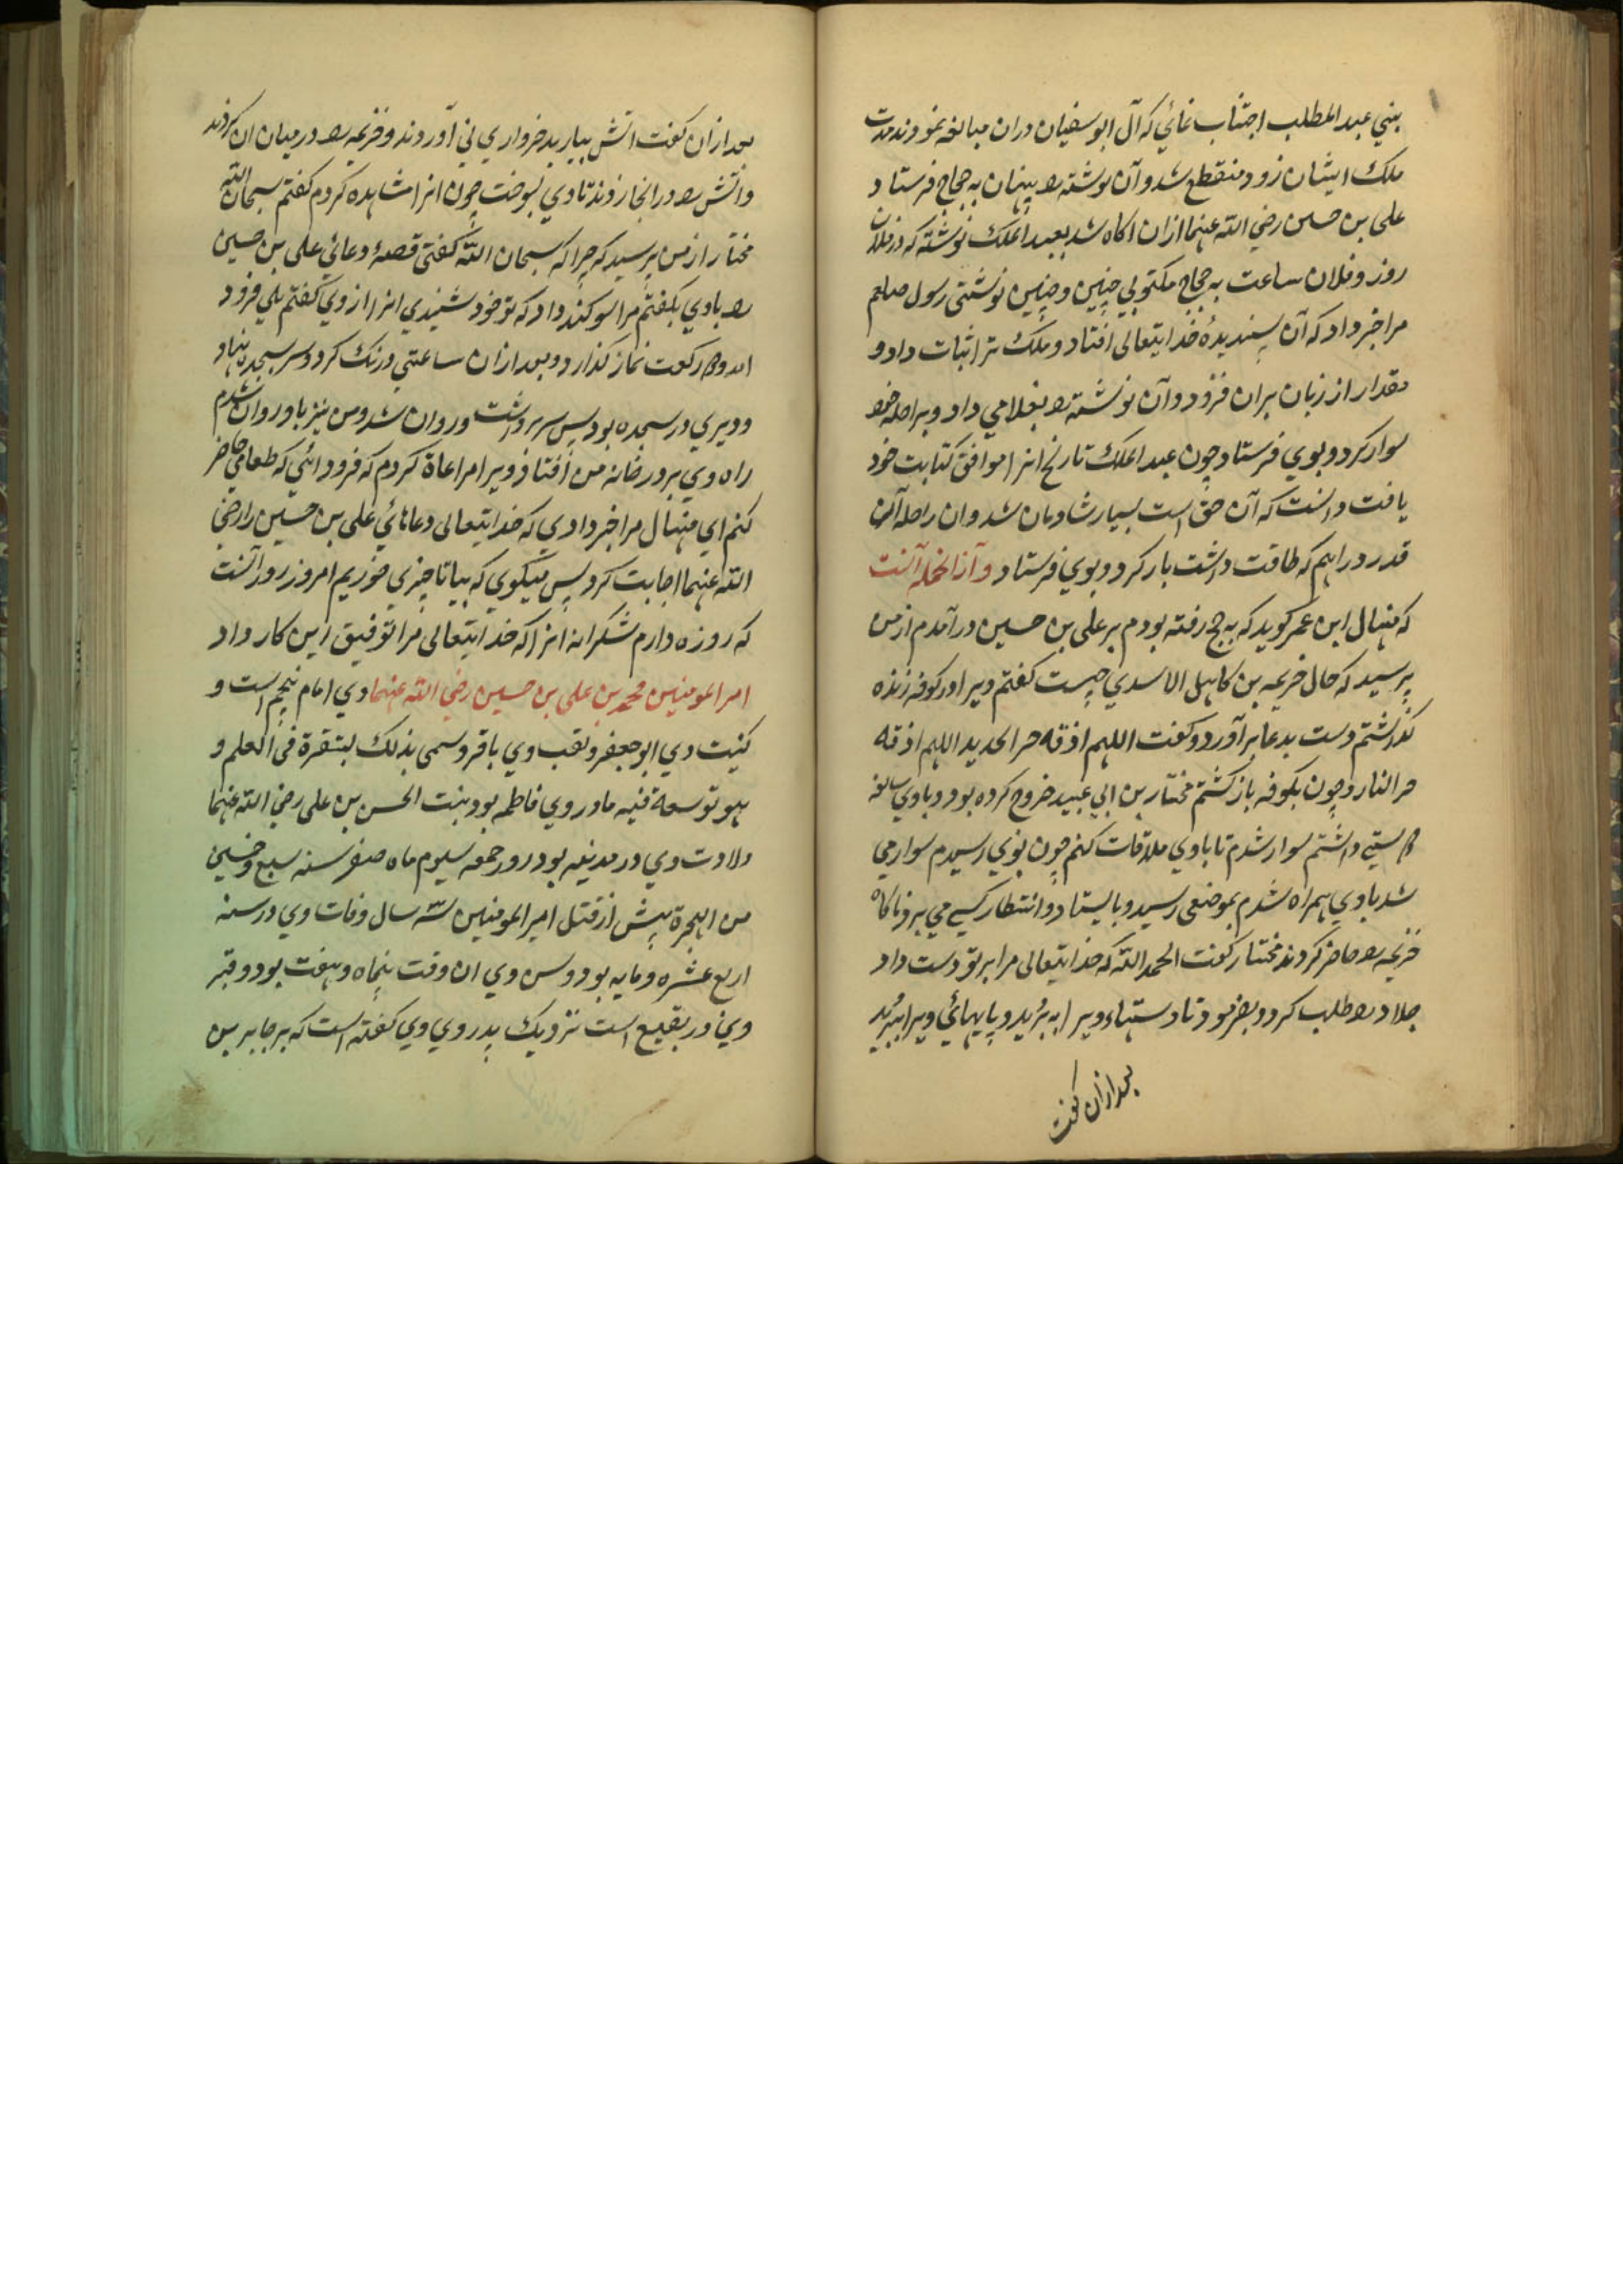 بني عبد المطلب اجتناب نمائي كه آل ابو سفيان دران مبالغه نمودند مدت
ملك ايشان زود منقطع شد و آن نوشته را پنهان به حجاج فرستاد
علي بن حسين رضي الله عنهما ازان اكاه شد بعبد الملك نوشته كه در فلان
روز و فلان ساعت به حجاج مكتوبي چنين و چنين نوشتي رسول صلعم
مرا خبر داد كه آن پسنديدهٔ خدايتعالى افتاد و ملك ترا ثبات داد و
مقدار از زبان بران فزود و آن نوشته را بغلامي داد و براحله خود
سوار كرد و بوي فرستاد چون عبد الملك تاريخ انرا موافق كتابت خود
يافت دانست كه آن حق است بسيار شادمان شد و ان راحله آن
قدر دراهم كه طاقت داشت بار كرد و بوي فرستاد و آزانجمله آنست
كه منهال ابن عمر كويد كه به حج رفته بودم بر علي بن حسين درآمدم از من
پرسيد كه حال خزيمه بن كاهل الاسدي چيست كفتم ويرا در كوفه زنده
كذاشتم دست بدعا بر آورد و كفت اللهم اذقه حر الحديد اللهم اذقه
حر النار و چون بكوفه باز كشتم مختار بن ابي عبيد خروج كرده بود و باوي سابقه
دوستي داشتم سوار شدم تا باوي ملاقات كنم چون بوي رسيدم سوار مي
شد باوي همراه شدم بموضعي رسيد و بايستاد و انتظار كسي مي برد ناكاه
خزيمه را حاضر كردند مختار كفت الحمد لله كه خدايتعالى مرا بر تو دست داد
جلاد را طلب كرد و بفرمود تا دستهاء ويرا به بريد و پايهائي ويرا ببريد
بعد ازان كفت
بعد ازان كفت اتش بياريد خرواري ني آوردند و خزيمه را در ميان ان كردند
و اتش را در انجا زدند تا وي بسوخت چون انرا مشاهده كردم كفتم سبحان الله
مختار از من پرسيد كه چرا كه سبحان الله كفتي قصهٔ دعائي علي بن حسين
را باوي بكفتم مرا سوكند داد كه تو خود شنيدي انرا از وي كفتم بلي فرود
امد و دو ركعت نماز كذارد و بعد ازان ساعتي درنك كرد و سر بسجده نهاد
و ديري در سجده بود پس سر برداشت و روان شد و من نيز باو روان شدم
راه وي بر در خانه من افتاد ويرا مراعاة كردم كه فرود ائي كه طعامي حاضر
كنم اي منهال مرا خبر دادي كه خدايتعالى دعاهائي علي بن حسين را رضي
الله عنهما اجابت كرد پس ميكوي كه بيا تا چيزي خوريم امروز روز آنست
كه روزه دارم شكرانه انرا كه خدايتعالى مرا توفيق اين كار داد
امير المومنين محمد بن علي بن حسين رضي الله عنهما وي امام پنجم است و
كنيت وي ابو جعفر و لقب وي باقر و سمي بذلك لبتقرة في العلم و
هو توسعة فنيه مادر وي فاطمه بود بنت الحسن بن علي رضي الله عنهما
ولادت وي در مدينه بود روز جمعه سيوم ماه صفر سنه سبع و خمسين
من الهجرة پيش از قتل امير المومنين سه سال وفات وي در سنه
اربع عشره و مايه بود و سن وي ان وقت پنجاه و هفت بود و قبر
وي در بقيع است نزديك پدر وي وي كفته است كه بر جابر بن